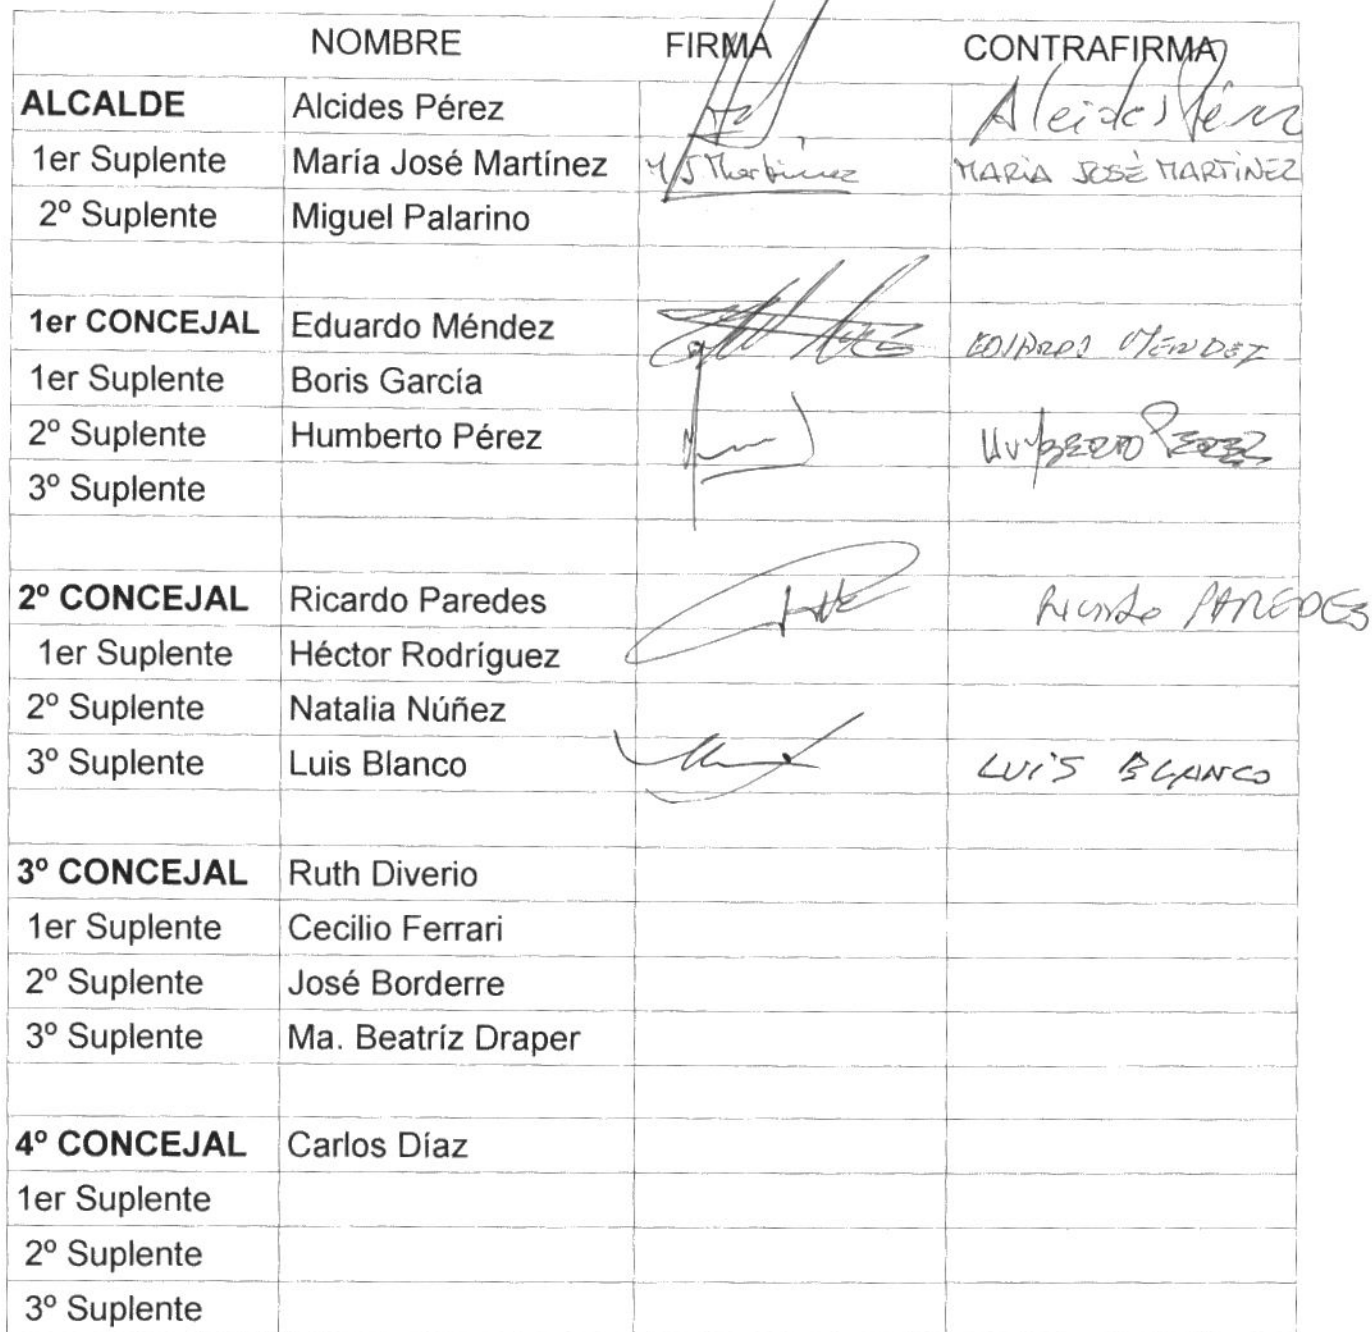 NOMBRE FIRMA CONTRAFIRMA
ALCALDE Alcides Pérez Alcides Pérez
1er Suplente María José Martínez MJ Martínez MARIA JOSÉ MARTÍNEZ
2º Suplente Miguel Palarino
1er CONCEJAL Eduardo Méndez EDUARDO MENDEZ
1er Suplente Boris García
2º Suplente Humberto Pérez HUMBERTO PEREZ
3º Suplente
2º CONCEJAL Ricardo Paredes Ricardo PAREDES
1er Suplente Héctor Rodríguez
2º Suplente Natalia Núñez
3º Suplente Luis Blanco LUIS BLANCO
3º CONCEJAL Ruth Diverio
1er Suplente Cecilio Ferrari
2º Suplente José Borderre
3º Suplente Ma. Beatríz Draper
4º CONCEJAL Carlos Díaz
1er Suplente
2º Suplente
3º Suplente